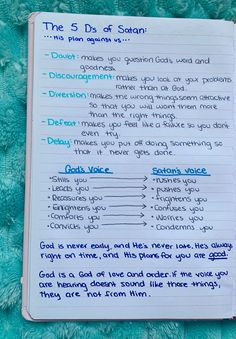 The 5 Ds of Satan:
... His plan against us ...
- Doubt: makes you question God's word and
goodness.
- Discouragement: makes you look at your problems
rather than at God.
- Diversion: makes the wrong things seem attractive
so that you will want them more
than the right things.
- Defeat: makes you feel like a failure so you don't
even try.
- Delay: makes you put off doing something so
that it never gets done.
God's Voice Satan's voice
• Stills you → • Rushes you
• Leads you → • pushes you
• Reassures you → • Frightens you
• Enlightens you → • Confuses you
• Comforts you → • Worries you
• Convicts you → • Condemns you
God is never early, and He's never late. He's always
right on time, and His plans for you are good.
God is a God of love and order. if the voice you
are hearing doesnt sound like those things,
they are not from Him.